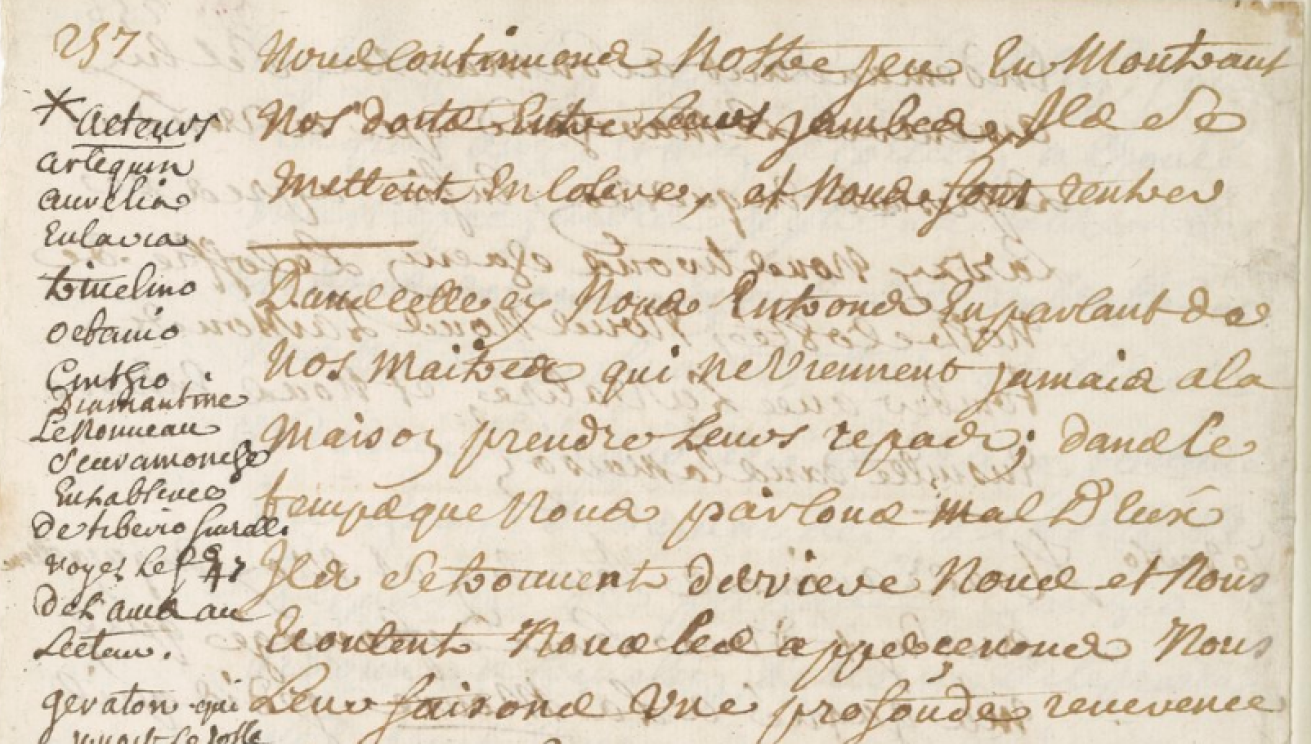 257
* acteurs
arlequin
aurelia
Eularia
trivelino
octavio
Cinthio
Diamantine
Le Bonneau
Scaramouche
En habsence
de tiberio fiurelli
voyez le f° 47
de L'avis au
Lecteur.
geraton qui
Nous continuons Nostre jeu En Montrant
Nos dots Entre Leurs jambes, Ils Se
Mettent En Colere, et Nous font rentrer
Dans celle cy Nous Entrons En parlant de
Nos Maitres qui ne Viennent jamais a la
Maison prendre Leurs repas; dans le
temps que Nous parlons mal D'Eux
Ils Se trouvent derriere Nous et Nous
Ecoutent Nous les apperçevons Nous
Leur faisons Une profonde reverence